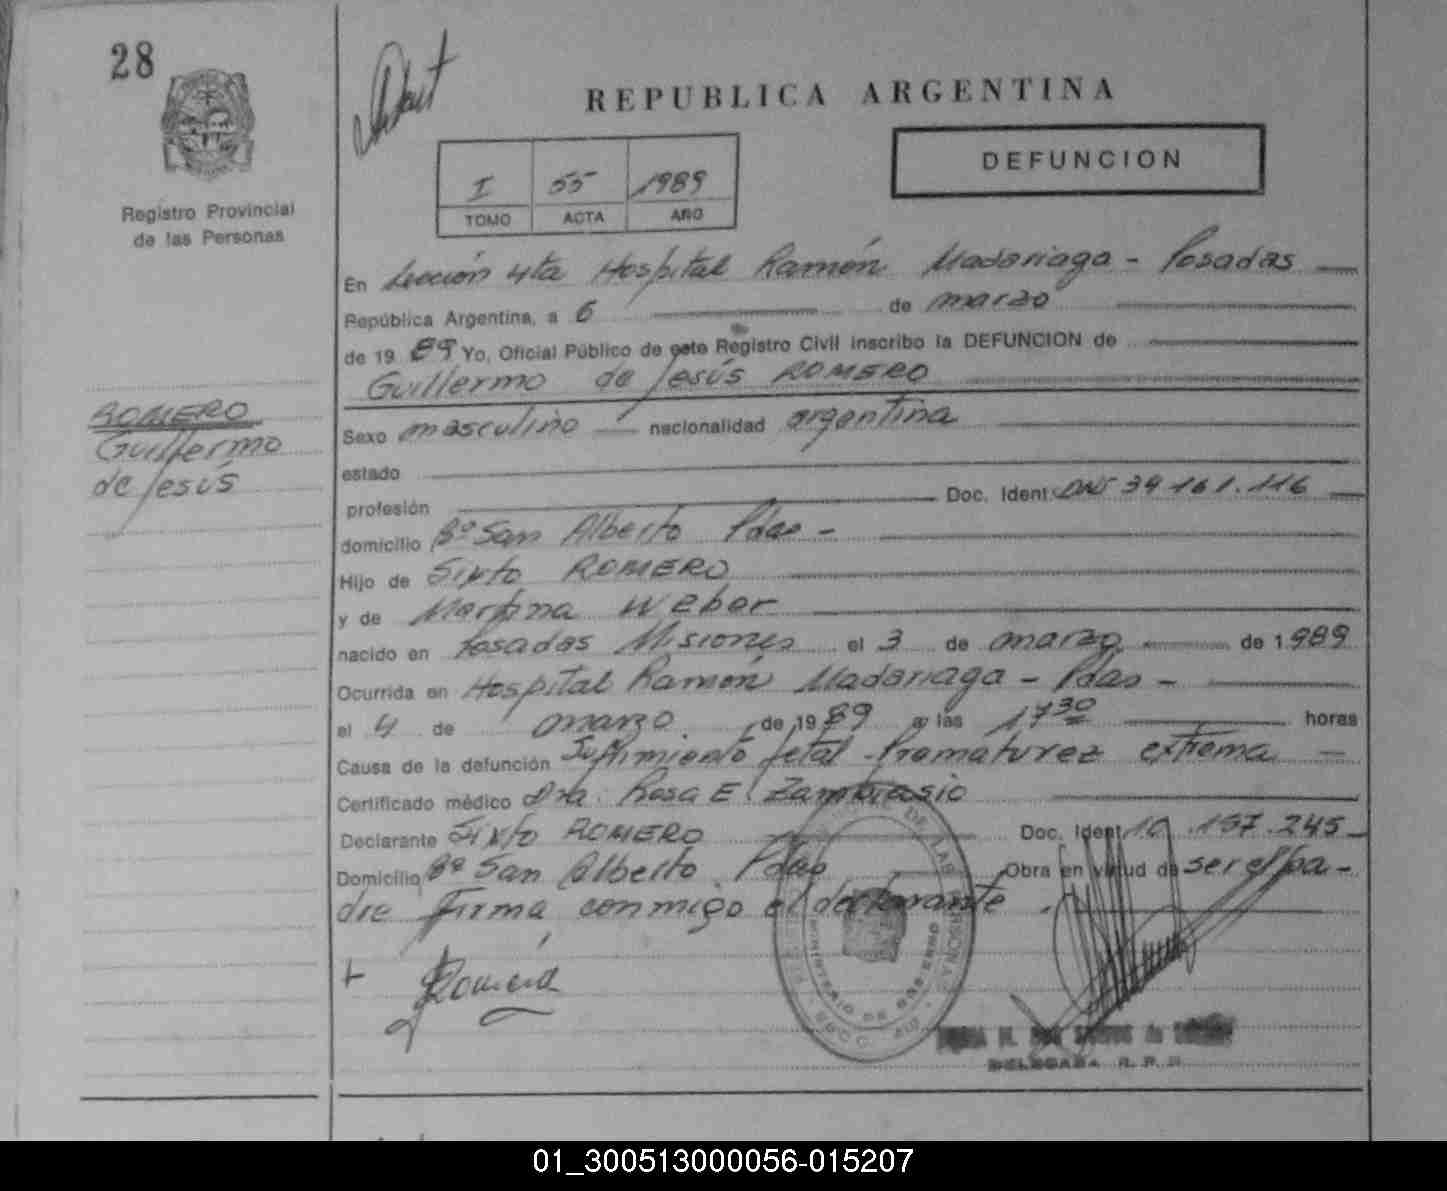 28
REPUBLICA ARGENTINA
DEFUNCION
I 55 1989
TOMO ACTA AÑO
Registro Provincial
de las Personas
ROMERO
Guillermo
de Jesús
En Sección 4ta Hospital Ramón Madariaga - Posadas
República Argentina, a 6 de marzo
de 19 89 Yo, Oficial Público de este Registro Civil inscribo la DEFUNCION de
Guillermo de Jesús ROMERO
Sexo masculino nacionalidad argentina
estado
profesión Doc. Ident. DNI 34.161.116
domicilio Bº San Alberto Pdas -
Hijo de Sixto ROMERO
y de Martina Weber
nacido en Posadas Misiones el 3 de marzo de 1.989
Ocurrida en Hospital Ramón Madariaga - Pdas -
el 4 de marzo de 1989 a las 17 30 horas
Causa de la defunción Sufrimiento fetal - Prematurez extrema
Certificado médico Dra. Rosa E. Zambiasio
Declarante Sixto ROMERO Doc. Ident. 10.157.245
Domicilio Bº San Alberto Pdas Obra en virtud de ser el pa-
dre Firma conmigo el declarante.
Romero
DELEGADA R. P. P.
01_300513000056-015207